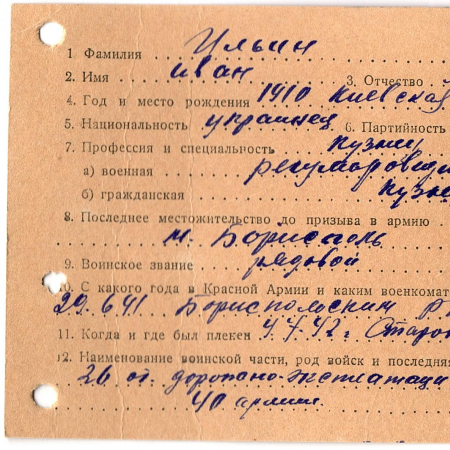 1 Фамилия Ильин
2. Имя Иван 3. Отчество
4. Год и место рождения 1910 Киевская
5. Национальность украинец 6. Партийность
7. Профессия и специальность кузнец
а) военная
б) гражданская кузне
8. Последнее местожительство до призыва в армию
м. Борисполь
9. Воинское звание рядовой
10. С какого года в Красной Армии и каким военкомат
29.6 41 Бориспольским Р
11. Когда и где был пленен 4.7.42г.
12. Наименование воинской части, род войск и последняя
26 от. дорожно-
40 армии